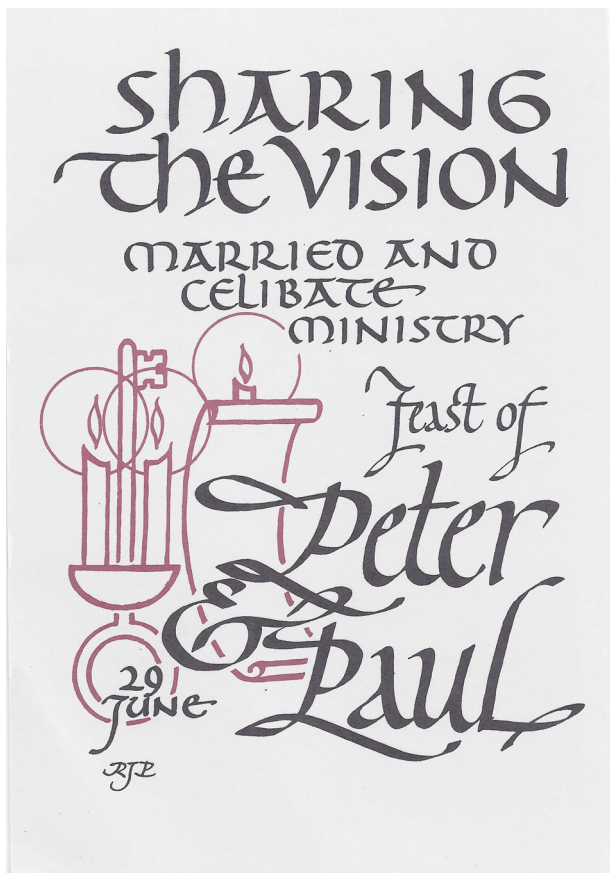 Sharing
the Vision
Married and
Celibate
Ministry
Feast of
Peter
& Paul
29
June
RJP